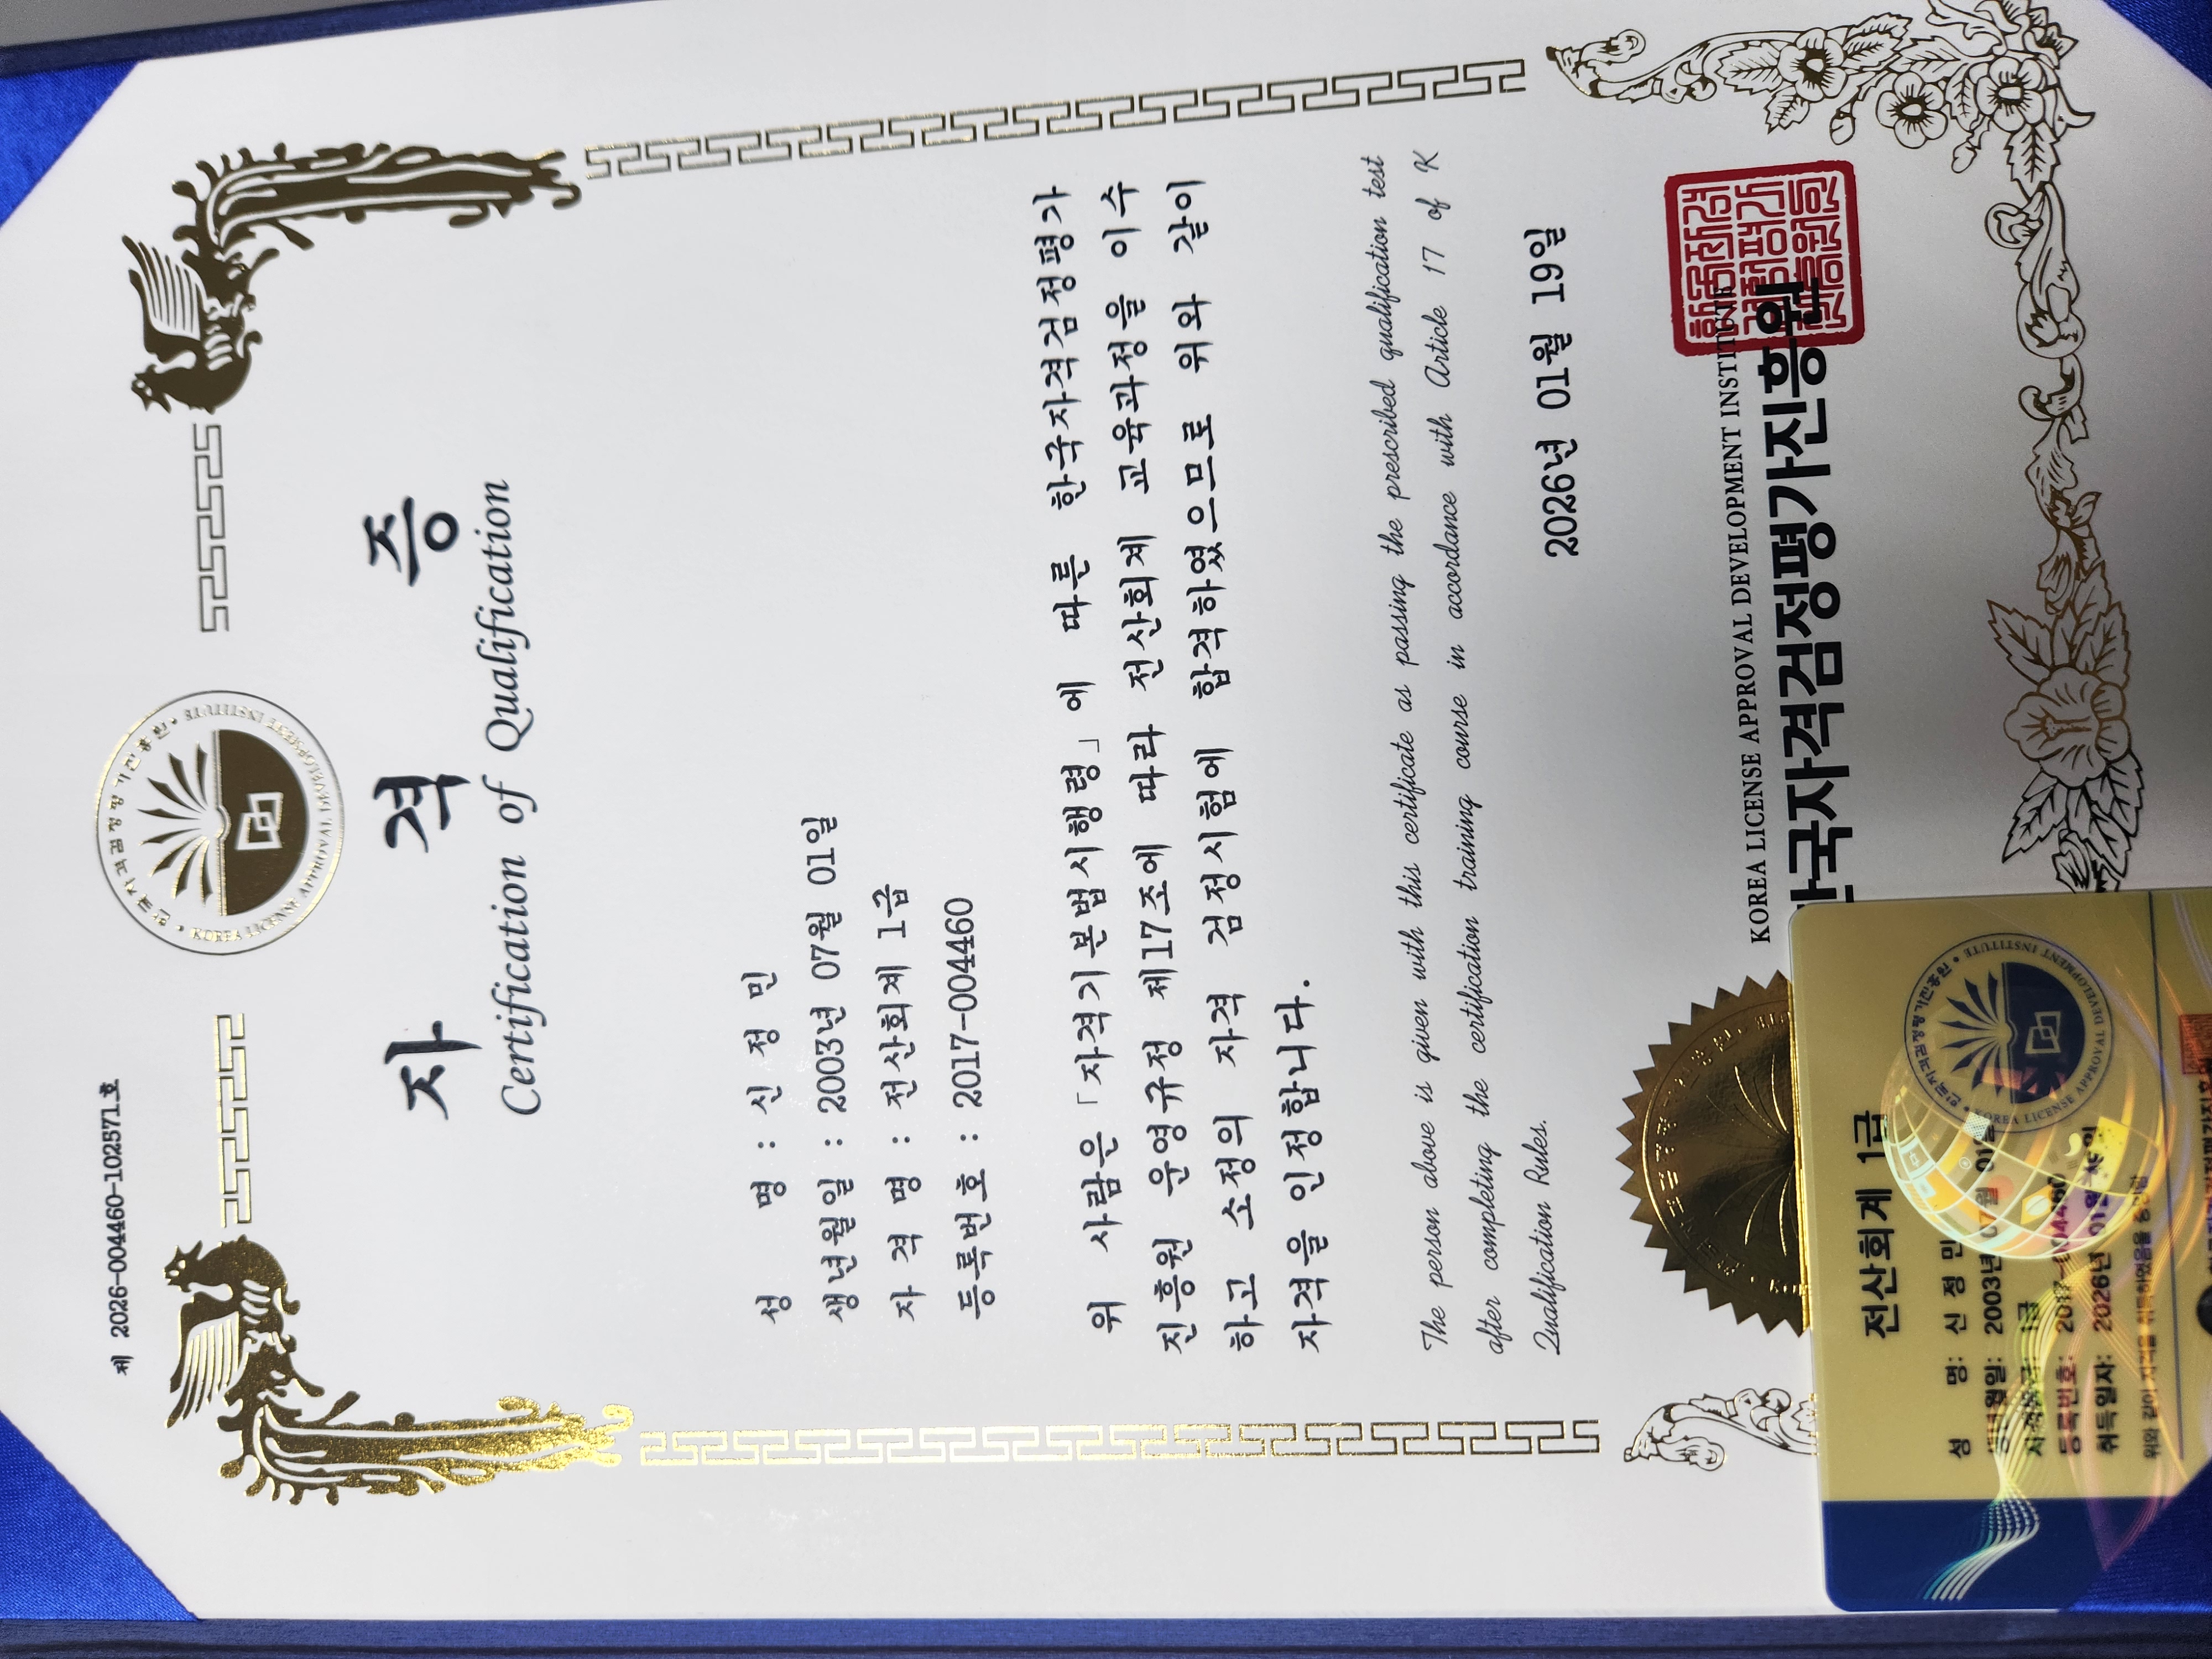 제 2026-004460-102571호
한국자격검정평가진흥원 • KOREA LICENSE APPROVAL DEVELOPMENT INSTITUTE •
자 격 증
Certification of Qualification
성 명 : 신 정 민
생년월일 : 2003년 07월 01일
자 격 명 : 전산회계 1급
등록번호 : 2017-004460
위 사람은 「자격기본법시행령」에 따른 한국자격검정평가
진흥원 운영규정 제17조에 따라 전산회계 교육과정을 이수
하고 소정의 자격 검정시험에 합격하였으므로 위와 같이
자격을 인정합니다.
The person above is given with this certificate as passing the prescribed qualification test
after completing the certification training course in accordance with Article 17 of K
Qualification Rules.
2026년 01월 19일
KOREA LICENSE APPROVAL DEVELOPMENT INSTITUTE
한국자격검정평가진흥원
전산회계 1급
성 명: 신 정 민
생년월일: 2003년 07월 01일
자격등급: 1급
등록번호: 2017-004460
취득일자: 2026년 01월 19일
위와 같이 자격을 취득하였음을 증명함
한국자격검정평가진흥원 • KOREA LICENSE APPROVAL DEVELOPMENT INSTITUTE •